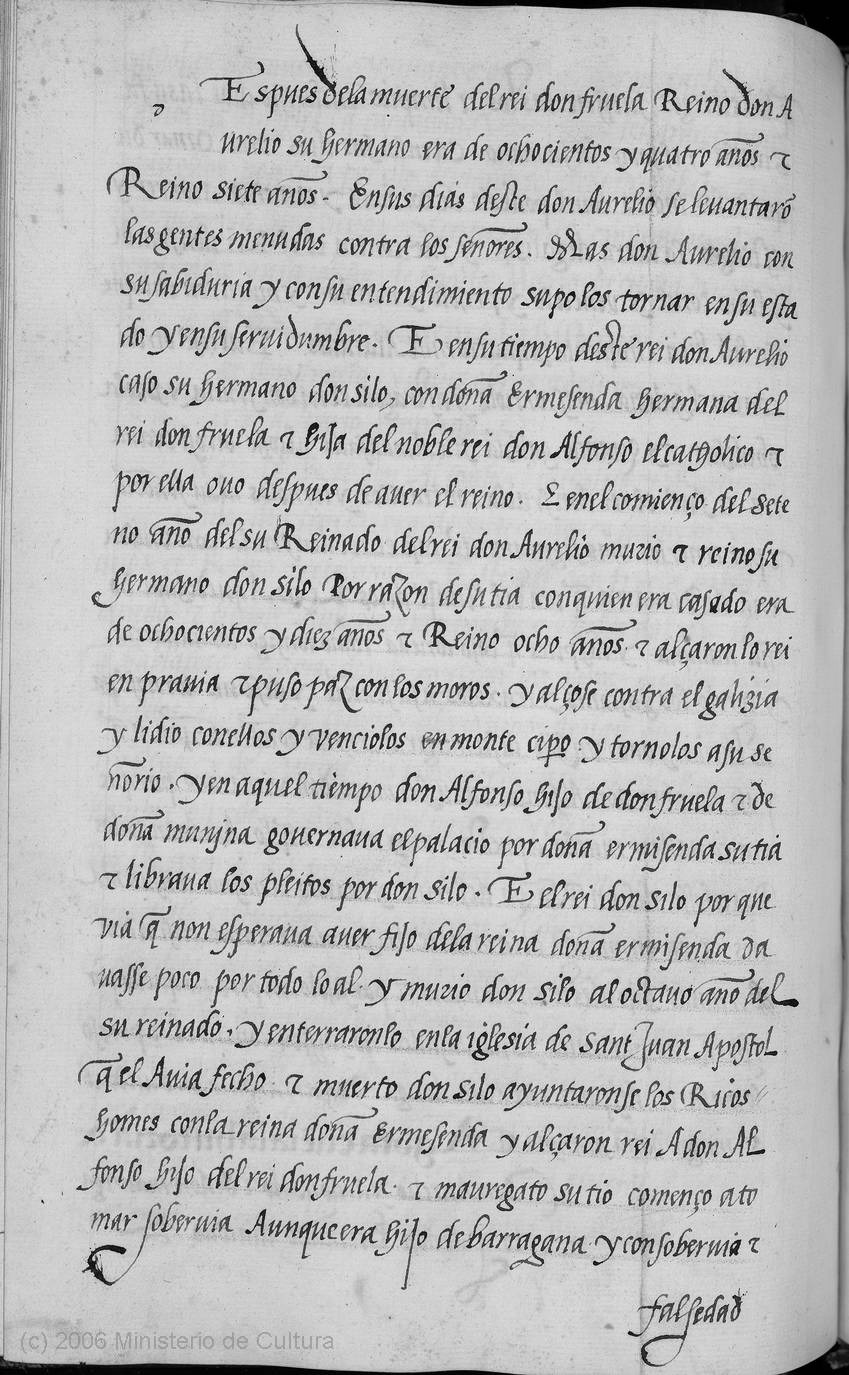 D Espues dela muerte del rei don fruela Reino don A
urelio su hermano era de ochocientos y quatro años τ
Reino siete años. En sus dias deste don Aurelio se levantarõ
las gentes menudas contra los señores. Mas don Aurelio con
su sabiduria y con su entendimiento supo los tornar en su esta
do y en su servidumbre. E en su tiempo deste rei don Aurelio
caso su hermano don silo, con doña Ermesenda hermana del
rei don fruela τ hija del noble rei don Alfonso el catholico τ
por ella ovo despues de aver el reino. E en el comienço del sete
no año del su Reinado del rei don Aurelio murio τ reino su
hermano don silo Por razon de su tia con quien era casado era
de ochocientos y diez años τ Reino ocho años. τ alçaron lo rei
en pravia τ puso paz con los moros. y alçose contra el galizia
y lidio conellos y venciolos en monte cipo y tornolos a su se
ñorio. y en aquel tiempo don Alfonso hijo de don fruela τ de
doña munjna governava el palacio por doña ermisenda su tia
τ librava los pleitos por don silo. E el rei don silo por que
via q̃ non esperava aver fijo dela reina doña ermisenda da
vasse poco por todo lo al. y murio don silo al octavo año del
su reinado. y enterraronlo enla iglesia de sant Juan Apostol
q̃ el Avia fecho. τ muerto don silo ayuntaronse los Ricos
homes conla reina doña Ermesenda y alçaron rei A don Al
fonso hijo del rei don fruela. τ mauregato su tio començo a to
mar sobervia Aunque era hijo de barragana y con sobervia τ
falsedad
(c) 2006 Ministerio de Cultura